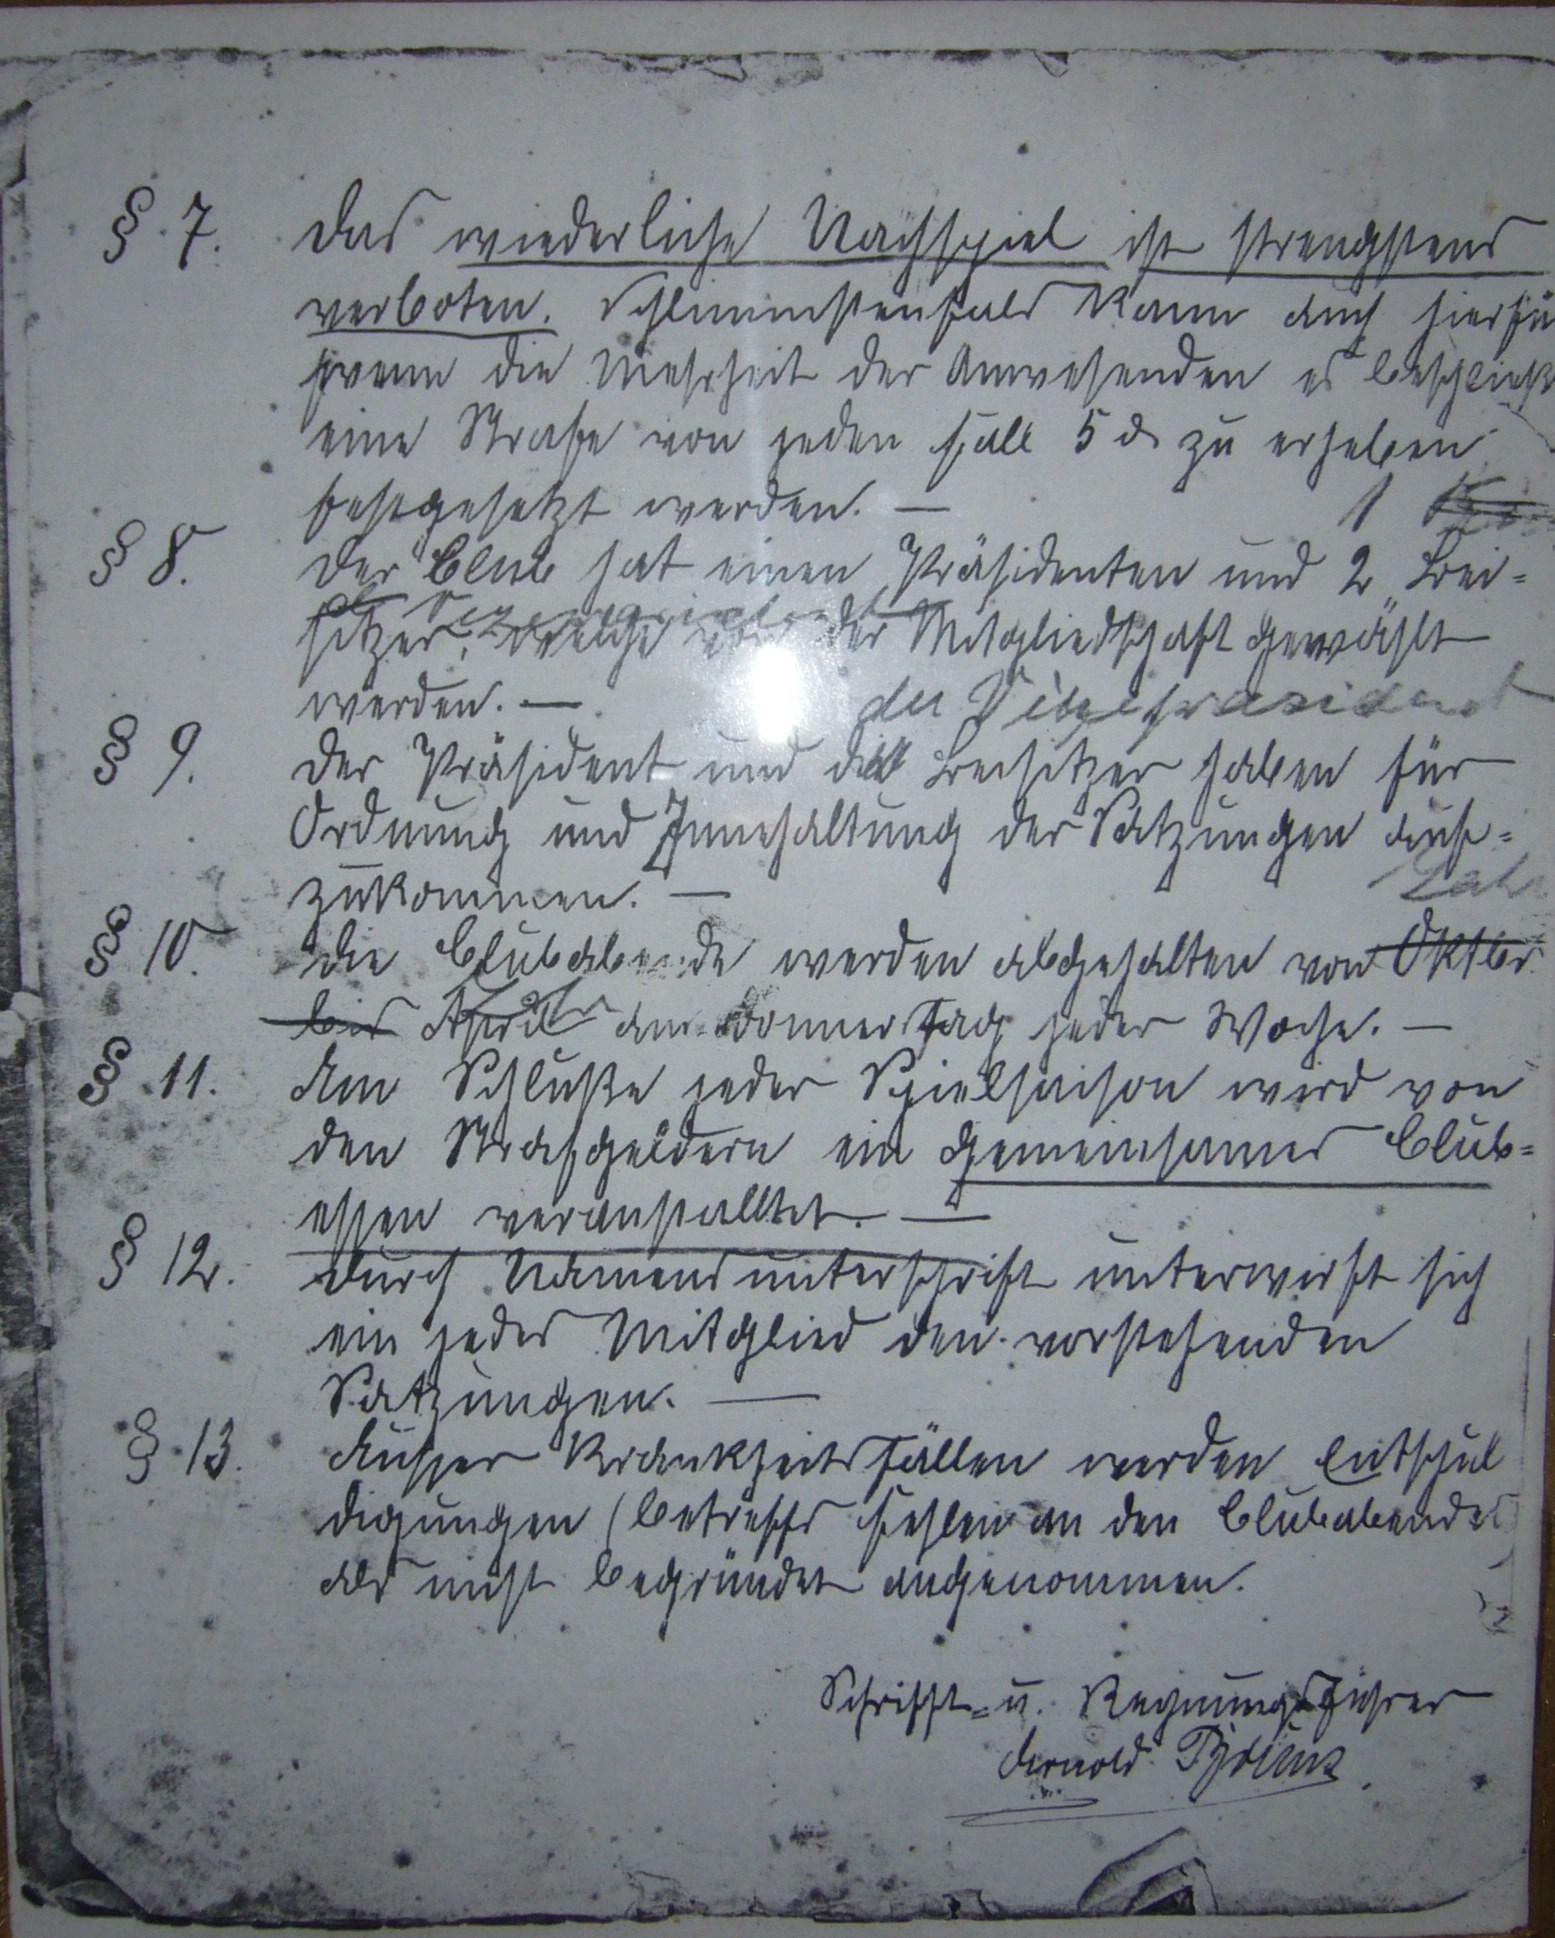 § 7. Das wiederliche Nachspiel ist strengstens
verboten. Schlimmstenfals kann auch hierfü
wenn die Mehrheit der Anwesenden es beschließt
eine Strafe von jeden Fall 5 ₰ zu erheben
festgesetzt werden. —
1
§ 8. Der Club hat einen Präsidenten und 2 Bei=
sitzer, welche von der Mitgliedschaft gewählt
werden. — der Vizepräsident
§ 9. Der Präsident und die Beisitzer haben für
Ordnung und Innehaltung der Satzungen auf=
zukommen. —
§ 10. Die Clubabende werden abgehalten von Oktbr.
bis April am Donnerstag jeder Woche. —
§ 11. Am Schluße jeder Spielsaison wird von
den Strafgeldern ein gemeinsames Club=
essen veranstalltet. —
§ 12. Durch Namensunterschrift unterwirft sich
ein jedes Mitglied den vorstehenden
Satzungen. —
§ 13. Ausser Krankheitsfällen werden Entschul
digungen (betreffs Fehlen an den Clubabenden
als nicht begründet angenommen.
Schrifft= u. Rechnungsführer
Arnold